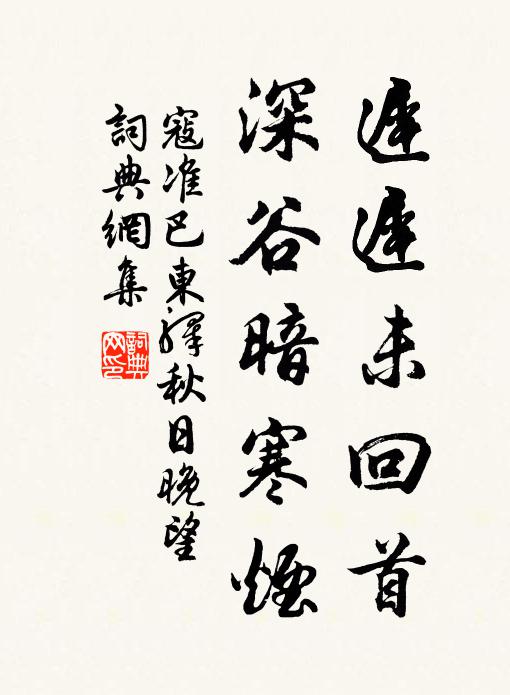 遲遲未回首
深谷暗寒煙
寇准巴東驛秋日晚望
詞典網集
詞典
网印